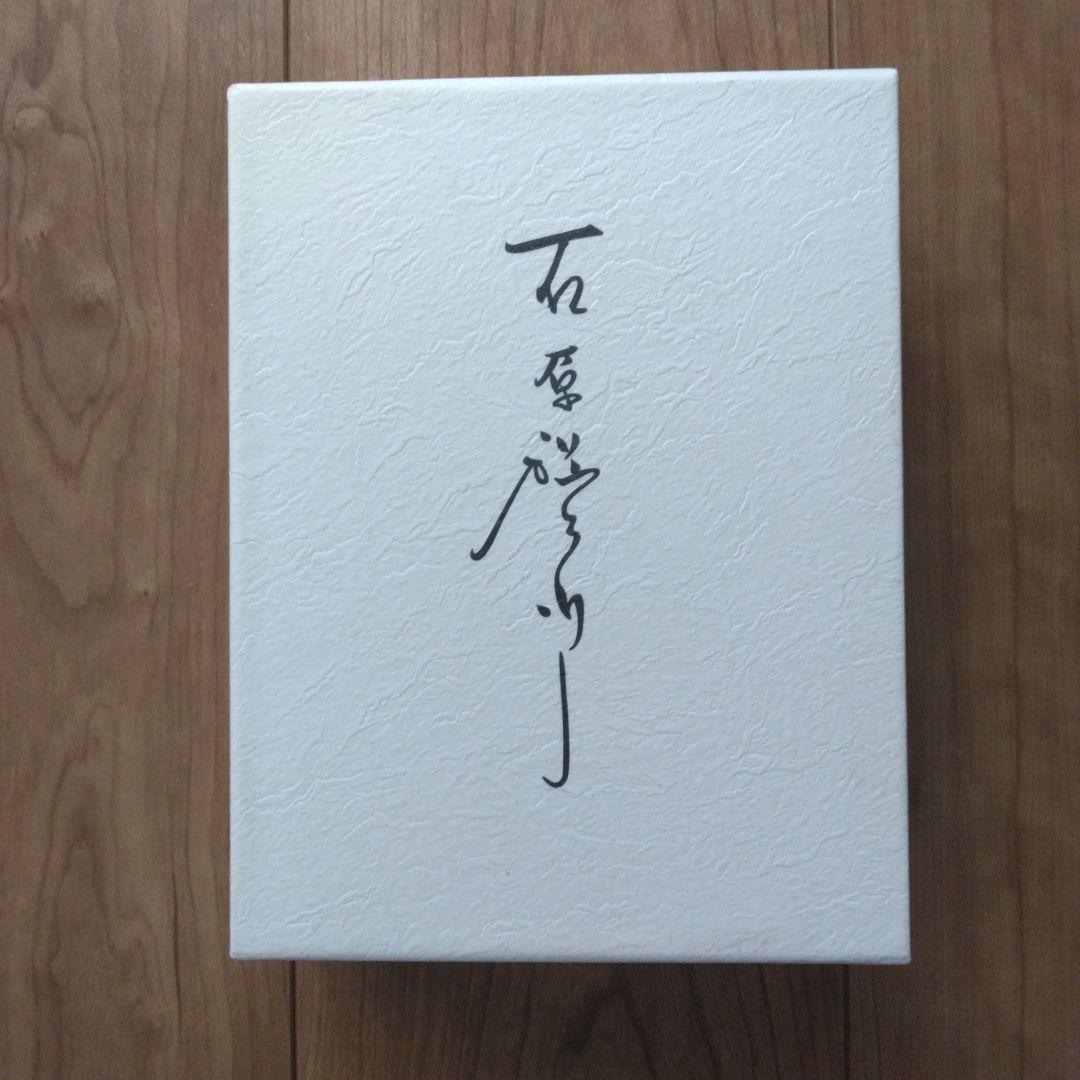 石原裕次郎